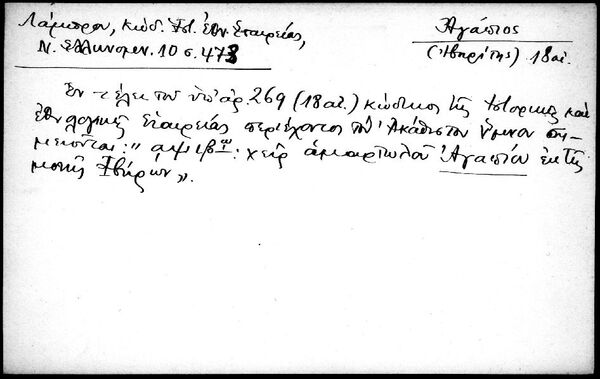 Λάμπρου, Κώδ. Ἱστ. Ἐθν. Ἑταιρείας,
Ν. Ἑλληνομν. 10 σ. 473
Ἀγάπιος
(Ἰβηρίτης) 18 αἰ.
Ἐν τέλει τοῦ ὑπ' ἀρ. 269 (18 αἰ.) κώδικος τῆς Ἱστορικῆς καὶ
Ἐθνολογικῆς Ἑταιρείας περιέχοντος τὸν Ἀκάθιστον ὕμνον ση-
μειοῦται: „ αψιβω: χεὶρ ἁμαρτωλοῦ Ἀγαπίου ἐκ τῆς
μονῆς Ἰβήρων „.